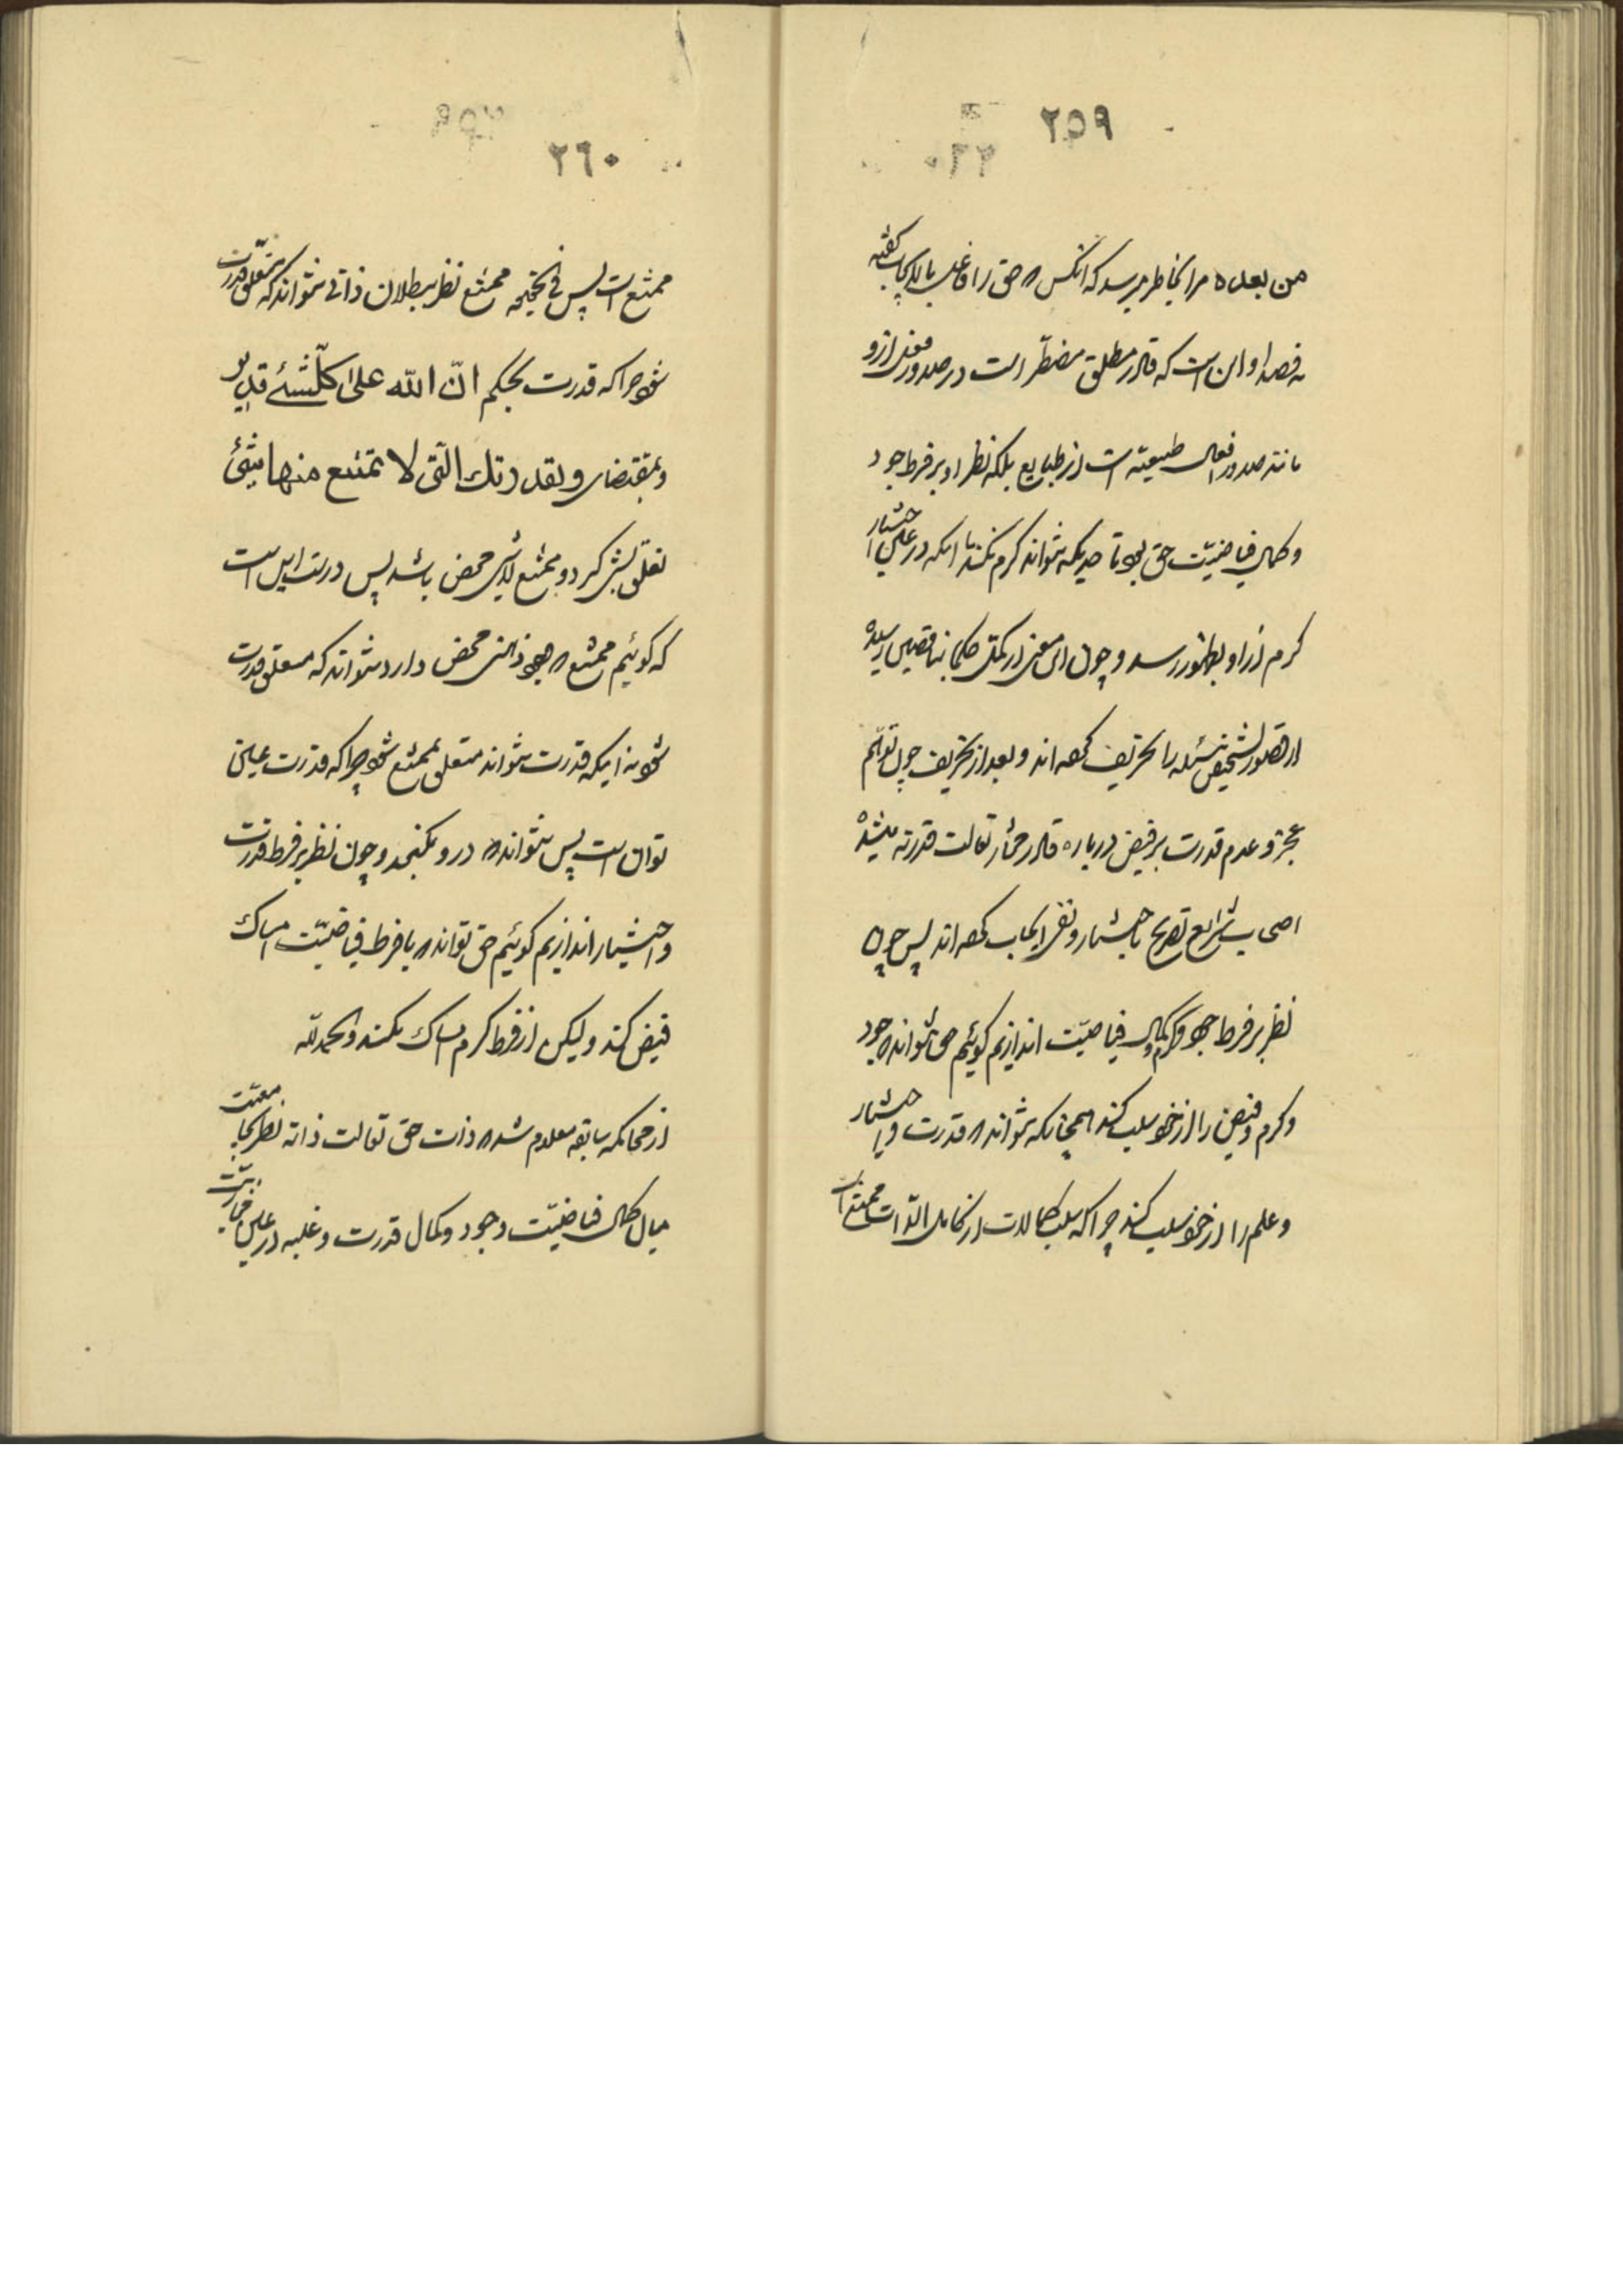 ۲۵۹
من بعده مرا بخاطر میرسد که انکس که حق را فاعل بالایجاب کفته
نه قصد او این است که قادر مطلق مضطرّ است در صدور فعل ازو
مانند صدور افعال طبیعیّه است از طبایع بلکه نظر او بر فرط جود
و کمال فیاضیّت حق بود تا حدیکه نتواند کرم نکند با انکه در عین اختیار
کرم از او بظهور رسد و چون این معنی از کمّل حکما بناقصین رسیده
از قصور تشخیص مسئله را تحریف کرده اند و بعد از تحریف چون توهّم
عجز و عدم قدرت بر فیض در باره قادر مختار تعالت قدرته میشده
اصحاب شرایع تصریح باختیار و نفی ایجاب کرده اند پس چون
نظر بر فرط جود و کرم و کمال فیاضیّت اندازیم کوئیم حق نتواند که جود
و کرم و فیض را از خود سلب کند همچنانکه نتواند که قدرت و اختیار
و علم را از خود سلب کند چرا که سلب کمالات از کامل الذّات ممتنع است
۲٦۰
ممتنع است پس فی الحقیقه ممتنع نظر ببطلان ذاتی نتواند که متعلّق قدرت
شود چرا که قدرت بحکم انّ الله علی کلّشئ قدیر
و بمقتضای و بقدرتك الّتی لا یمتنع منها شئ
تعلّق بشئ کیرد و ممتنع لاشئ محض باشد پس درست این است
که کوئیم ممتنع که وجود ذهنی محض دارد نتواند که متعلق قدرت
شود نه اینکه قدرت نتواند متعلق بممتنع شود چرا که قدرت عین
توان است پس نتواند که درو نکنجد و چون نظر بر فرط قدرت
و اختیار اندازیم کوئیم حق تواند که با فرط فیاضیّت امساك
فیض کند ولیکن از فرط کرم امساك نکند و الحمد لله
از محاکمه سابقه معلوم شد که ذات حق تعالت ذاته نظر بجامعیّت
میان کمال فیاضیّت و جود و کمال قدرت و غلبه در عین